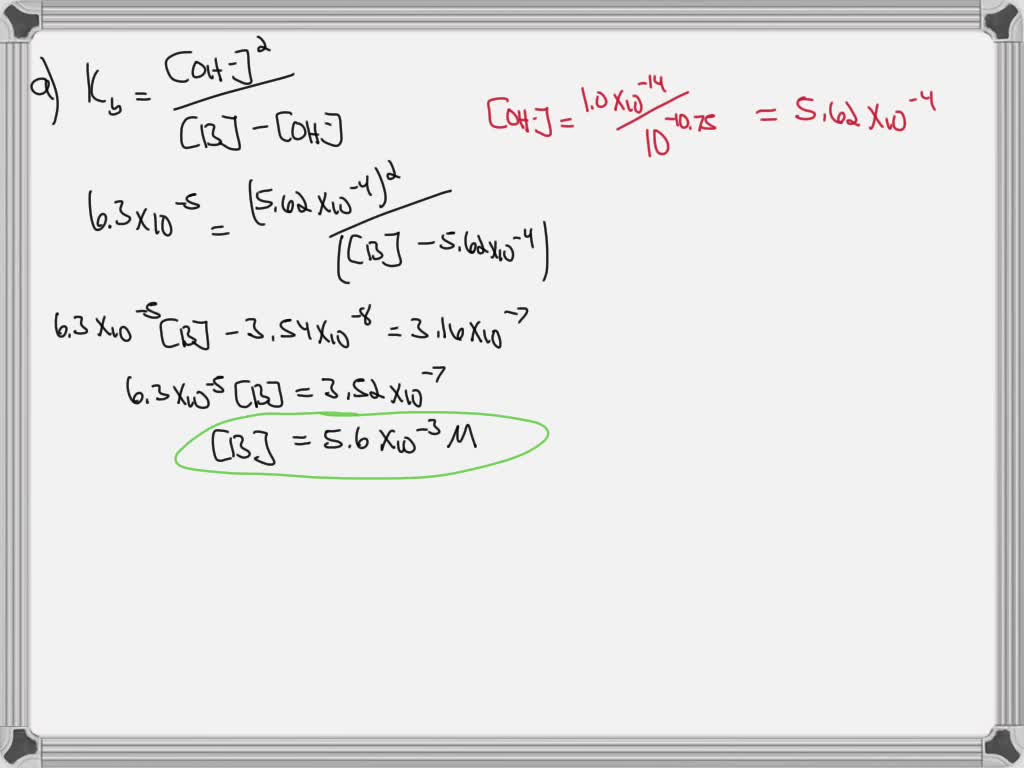 a) K_b = [OH-]² / ([B] - [OH-])
[OH-] = 1.0x10⁻¹⁴ / 10⁻¹⁰·⁷⁵ = 5.62x10⁻⁴
6.3x10⁻⁵ = (5.62x10⁻⁴)² / ([B] - 5.62x10⁻⁴)
6.3x10⁻⁵[B] - 3.54x10⁻⁸ = 3.16x10⁻⁷
6.3x10⁻⁵[B] = 3.52x10⁻⁷
[B] = 5.6x10⁻³ M